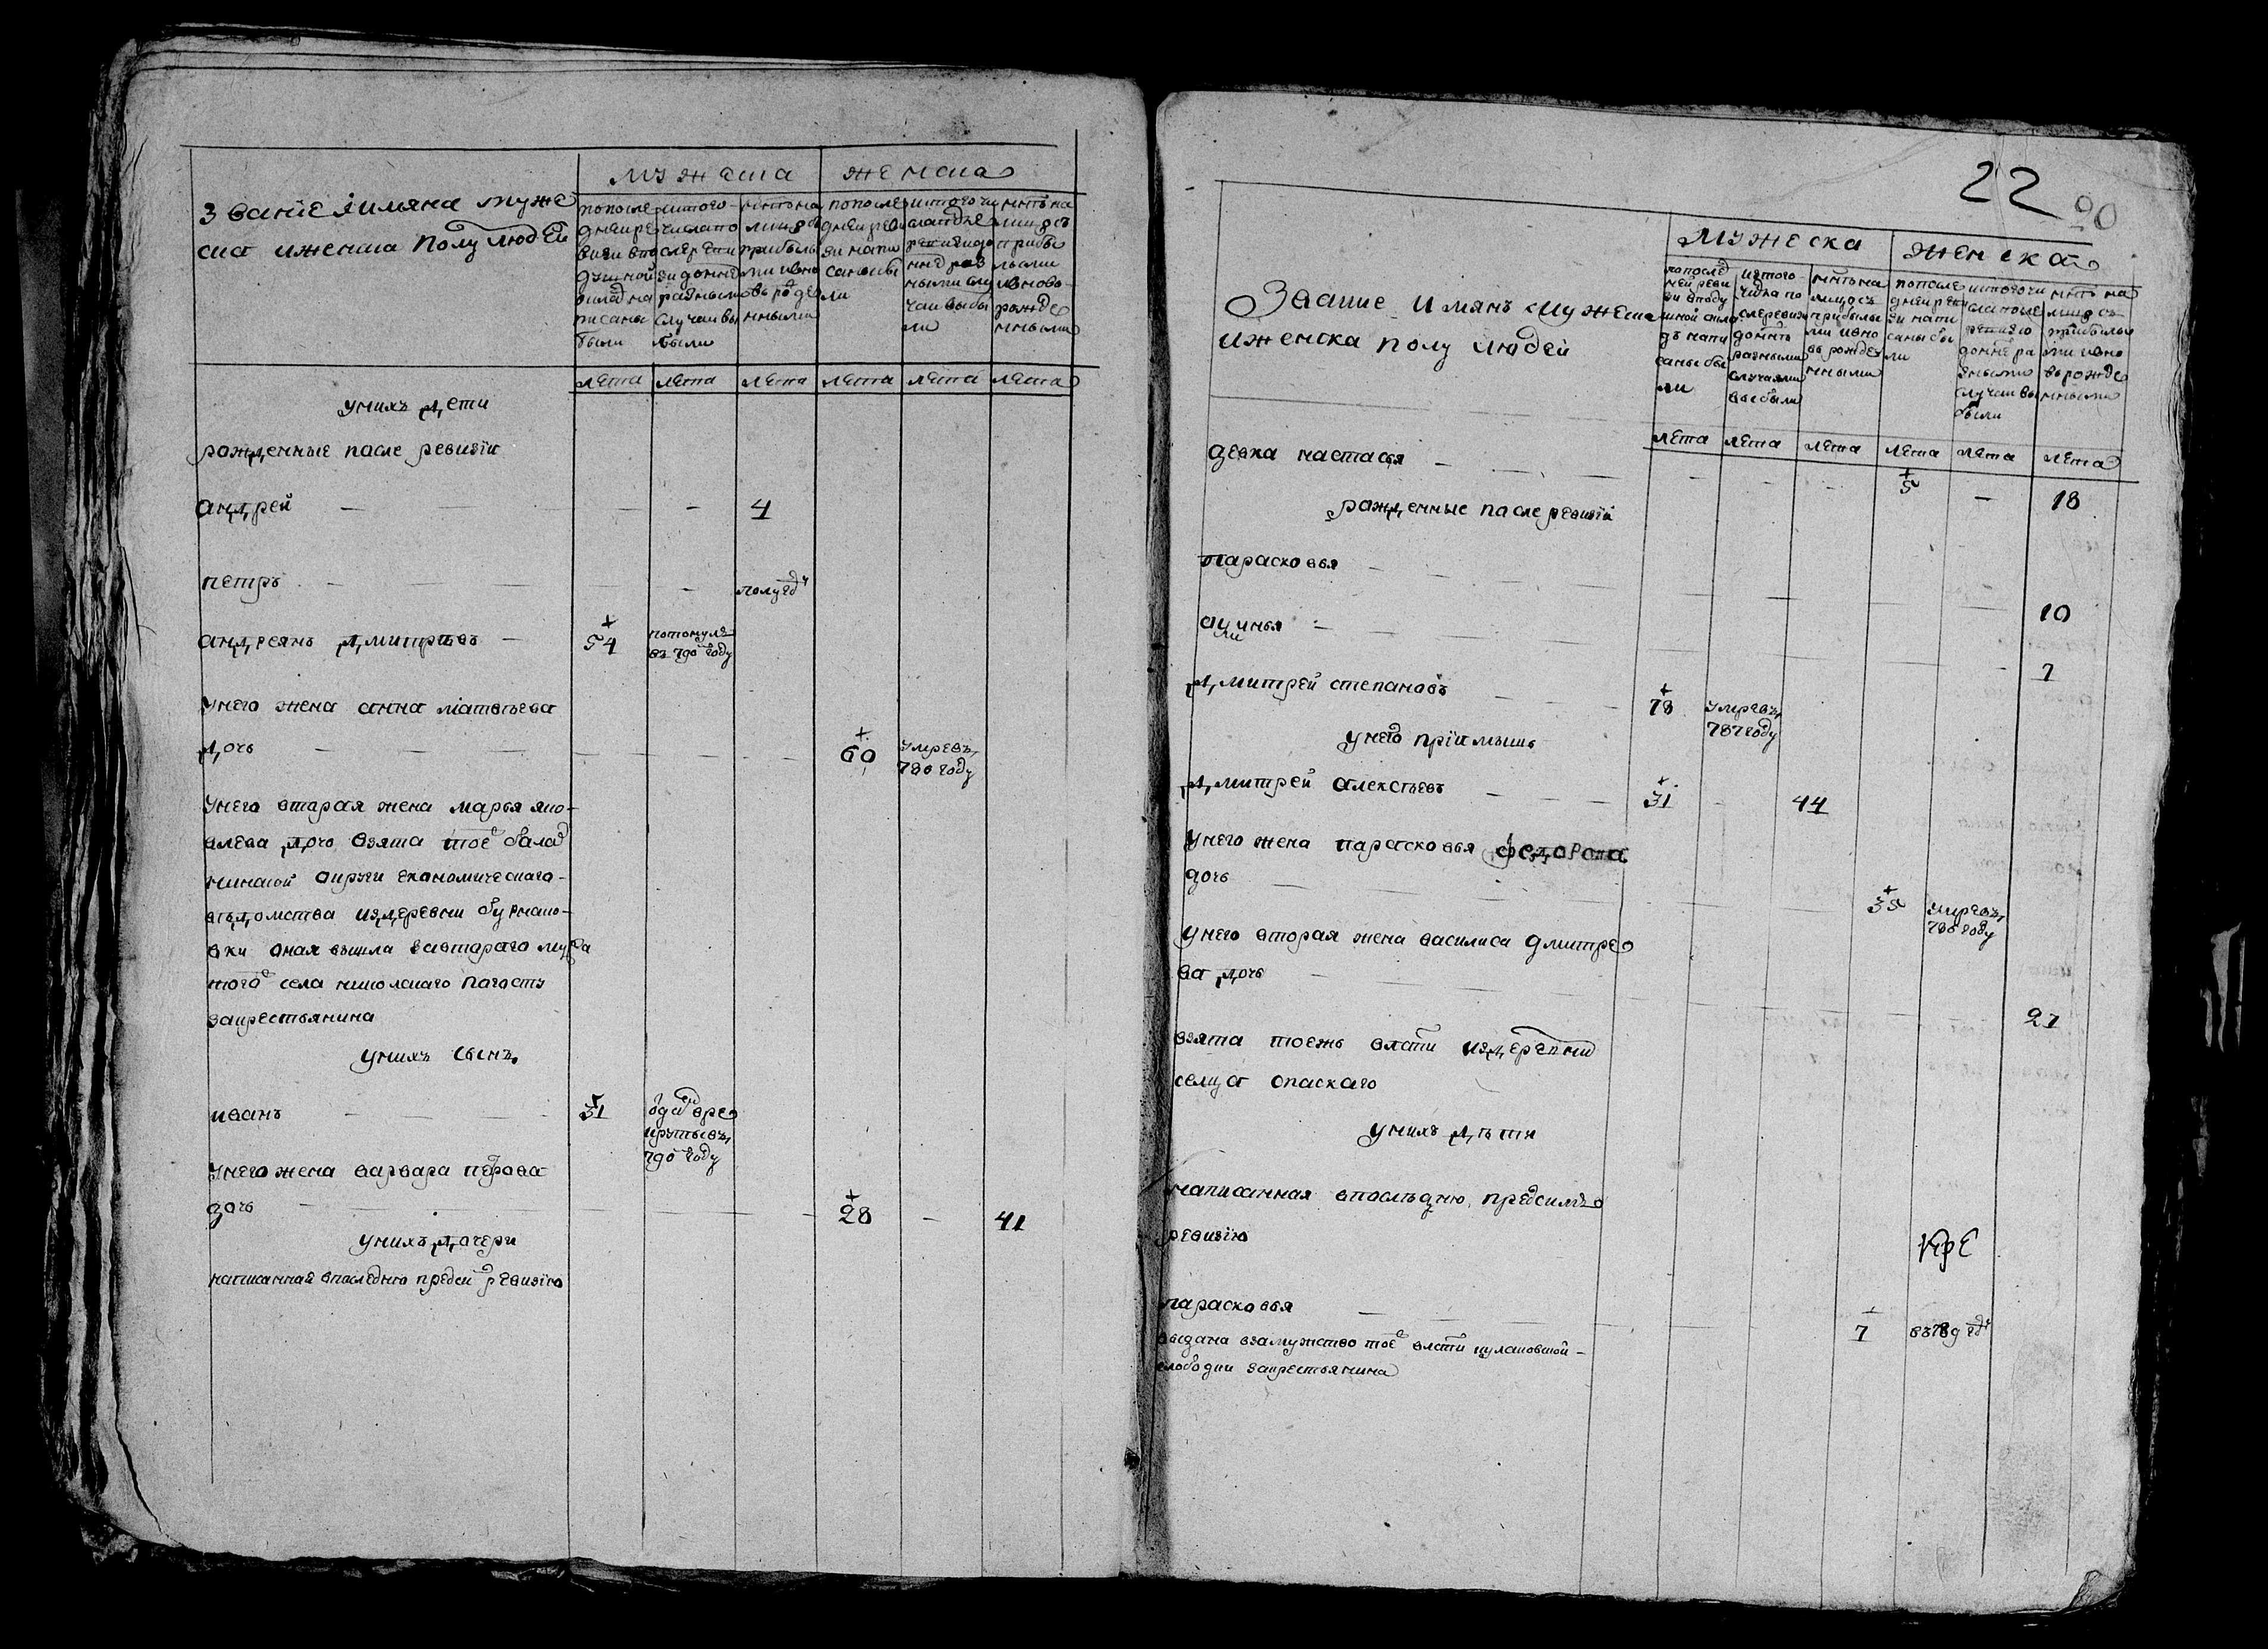 мужеска женска
Звание і имяна муже
ска и женска полу людей
по после
дней ре
визи в по
душной
оклад на
писаны
были
ис того
числа по
сле ревизи
до ныне
разными
случаи вы
были
ныне на
лицо с
прибылы
ми и вно
вь рожде
нными
по после
дней реви
зи напи
саны бы
ли
ис того чи
сла после
ревизи до
ныне раз
ными слу
чаи выбы
ли
ныне на
лицо съ
прибы
лыми
и вновь
рожде
нными
лета лета лета лета лета лета
у нихъ дети
рожденные после ревизіи
андрей 4
петръ полугоду
андреянъ дмитриевъ 54 потонулъ въ 790 году
у него жена анна матвѣева
дочь 60 умре въ 780 году
у него вторая жена марья яко
влева дочь взята тое балах
нинской округи економическаго
вѣдомства из деревни бурнако
вки оная вышла за втораго мужа
того села николскаго погосту
за крестьянина
у нихъ сынъ
иванъ 31 отдан в ре
круты въ
790 году
у него жена варвара петрова
дочь 28 41
у нихъ дочери
написанная в последнею пред сей ревизию
22
20
мужеска женска
Звание имянъ мужеска
и женска полу людей
по послед
ней реви
зи в поду
шной окла
дъ напи
саны бы
ли
ис того
числа по
сле ревизи
до ныне
разными
случаями
выбыли
ныне на
лицо съ
прибылы
ми и вно
вь рожде
нными
по после
дней реви
зи напи
саны бы
ли
ис того чи
сла после
ревизию
до ныне ра
зными
случаи вы
были
ныне на
лицо съ
прибылы
ми и вно
вь рожде
нными
лета лета лета лета лета лета
девка настасья 5 18
рожденные после ревизіи
парасковья 10
акилинья 7
дмитрей степановъ 78 умре въ
787 году
у него пріимышъ
дмитрей алексѣевъ 31 44
у него жена парасковья федорова
дочь 35 умре въ
780 году
у него вторая жена василиса дмитре
ва дочь 27
взята тоежъ власти из деревни
селца спаскаго
у нихъ дѣти
написанная в последнюю пред симъ
ревизию
парасковья 7 въ 789 году
выдана в замужство тое власти кулаковской
слободки за крестьянина